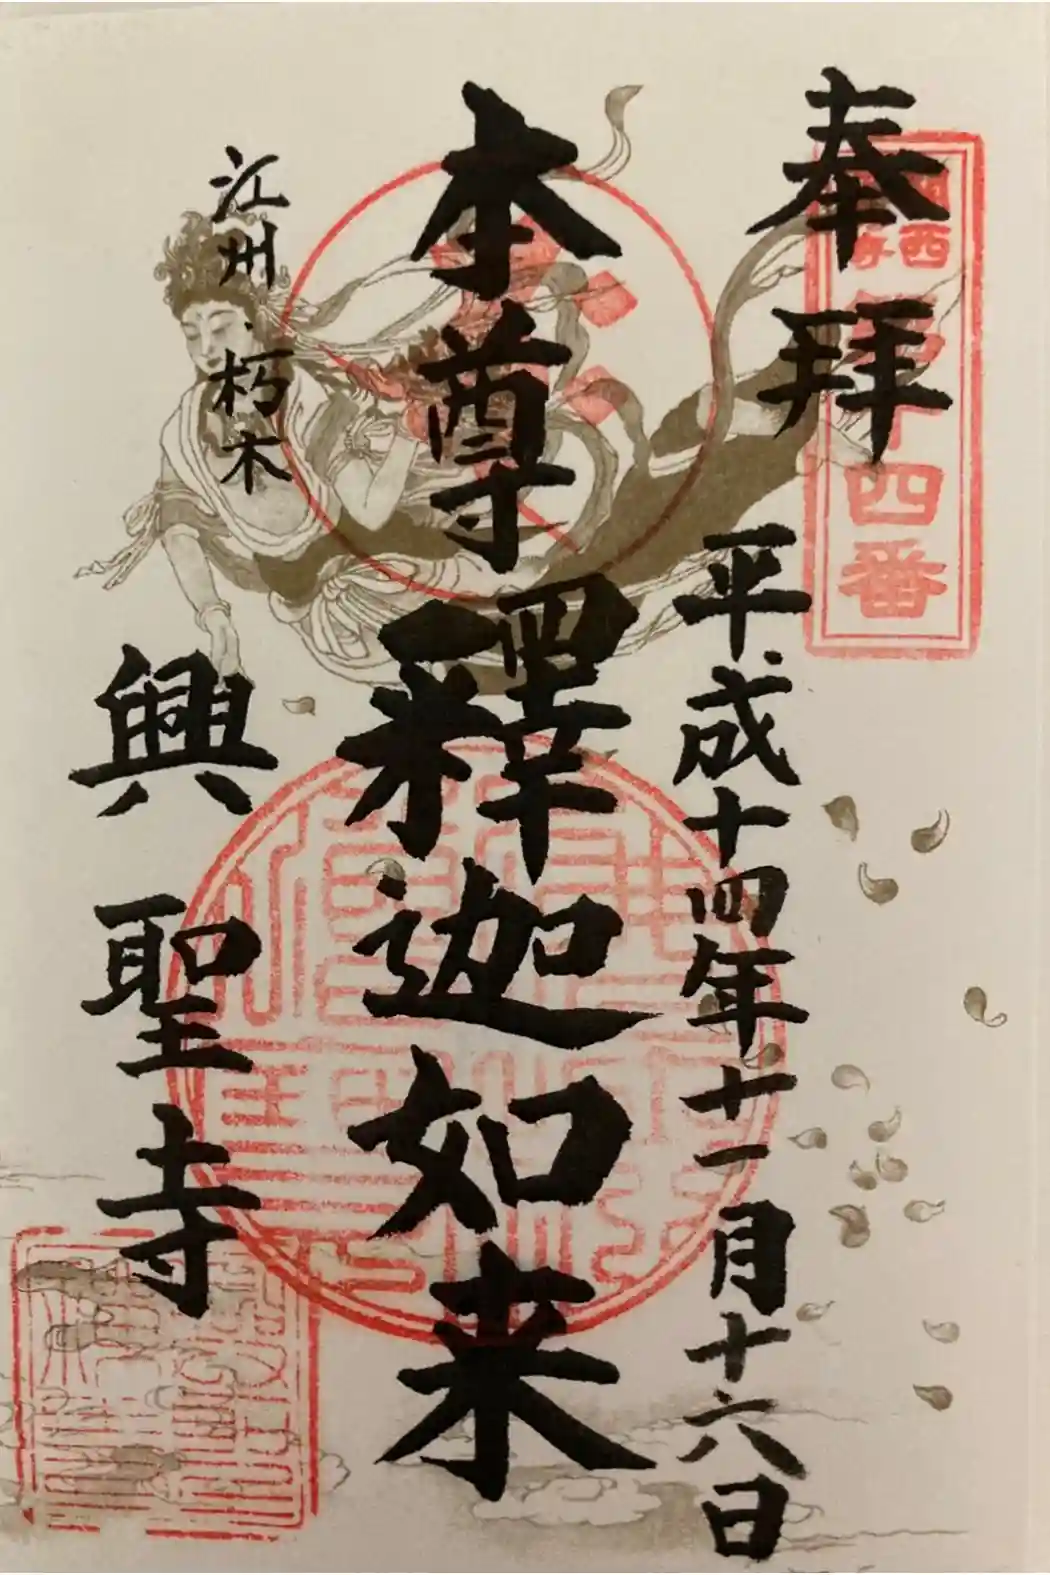 奉拝
四番
平成十四年十一月十六日
本尊釋迦如来
江州・朽木
興聖寺